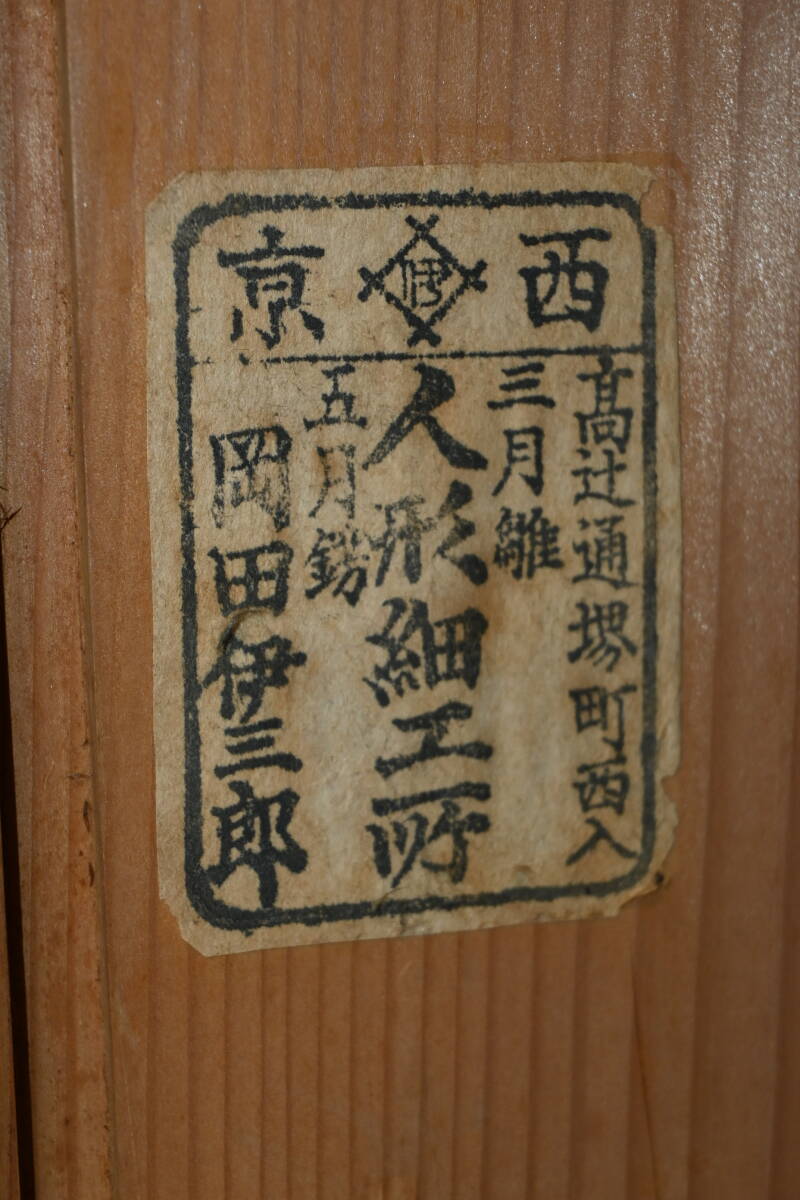 西京
伊
高辻通堺町西入
三月雛
人形細工所
五月錺
岡田伊三郎